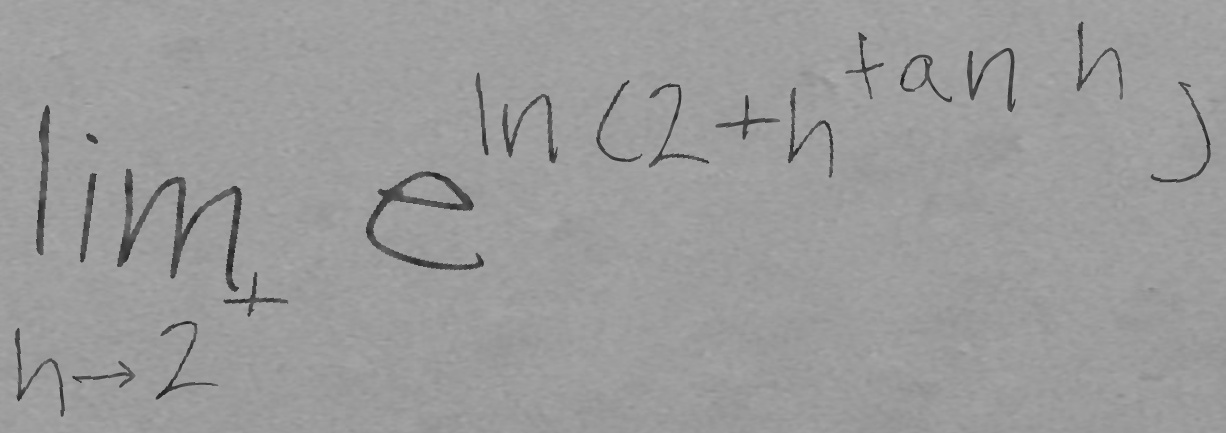 \lim_{h \to 2^+} e^{\ln(2+h^{\tan h})}